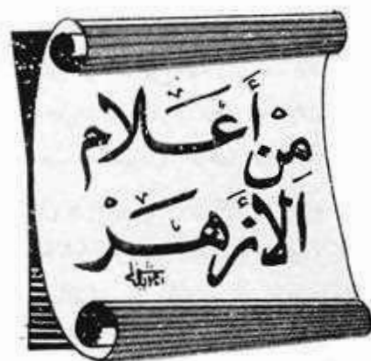 مِنْ أَعْلَام
الأَزْهَرْ